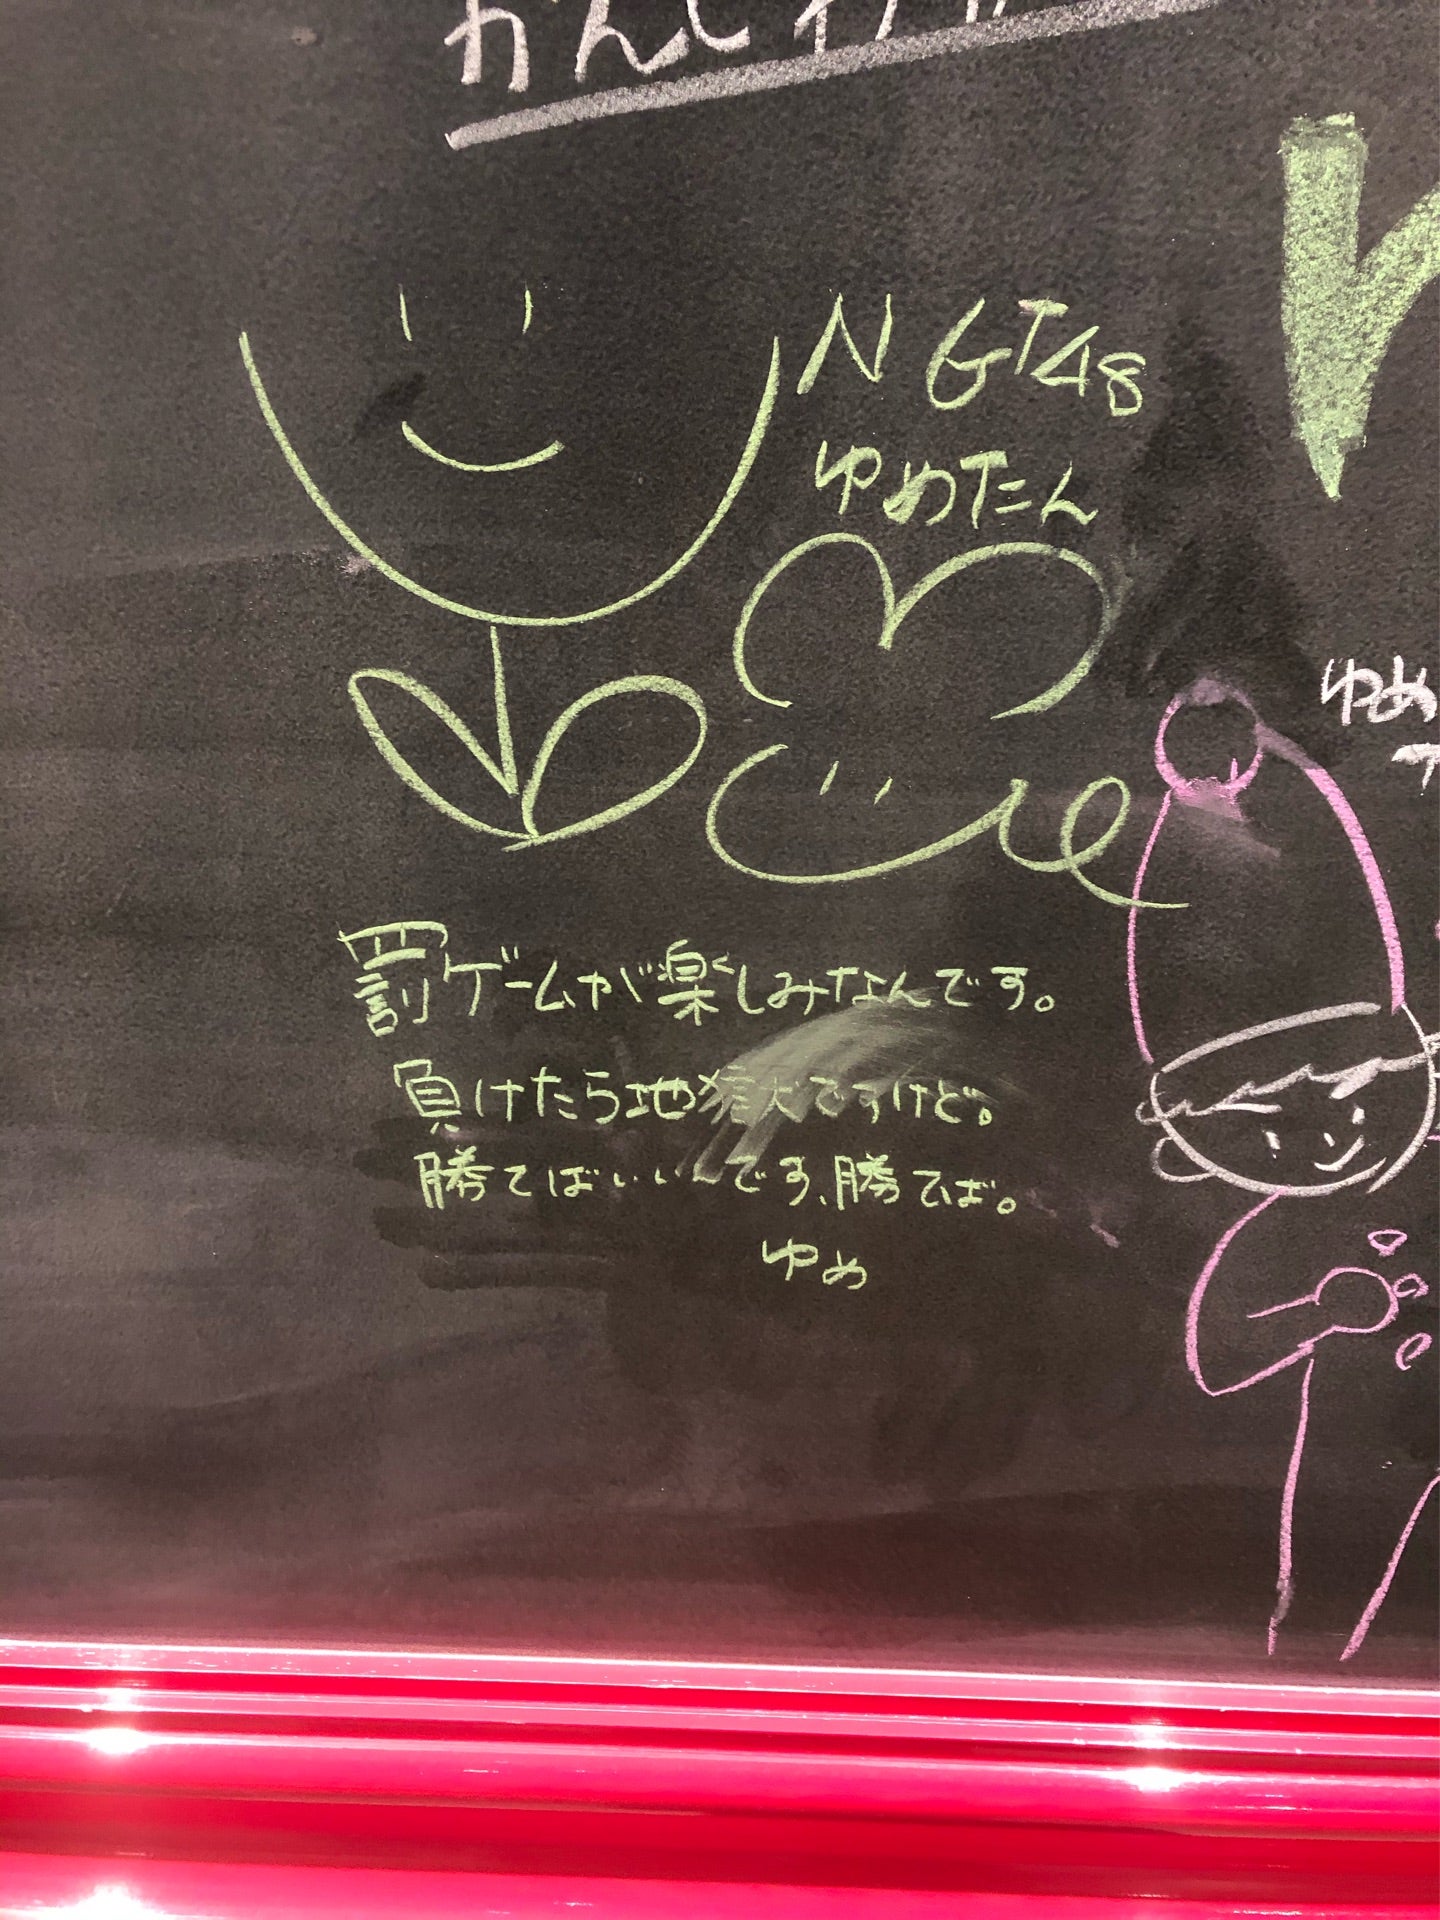 NGT48
ゆめたん
ゆめ
罰ゲームが楽しみなんです。
負けたら地獄ですけど。
勝てばいいんです、勝てば。
ゆめ